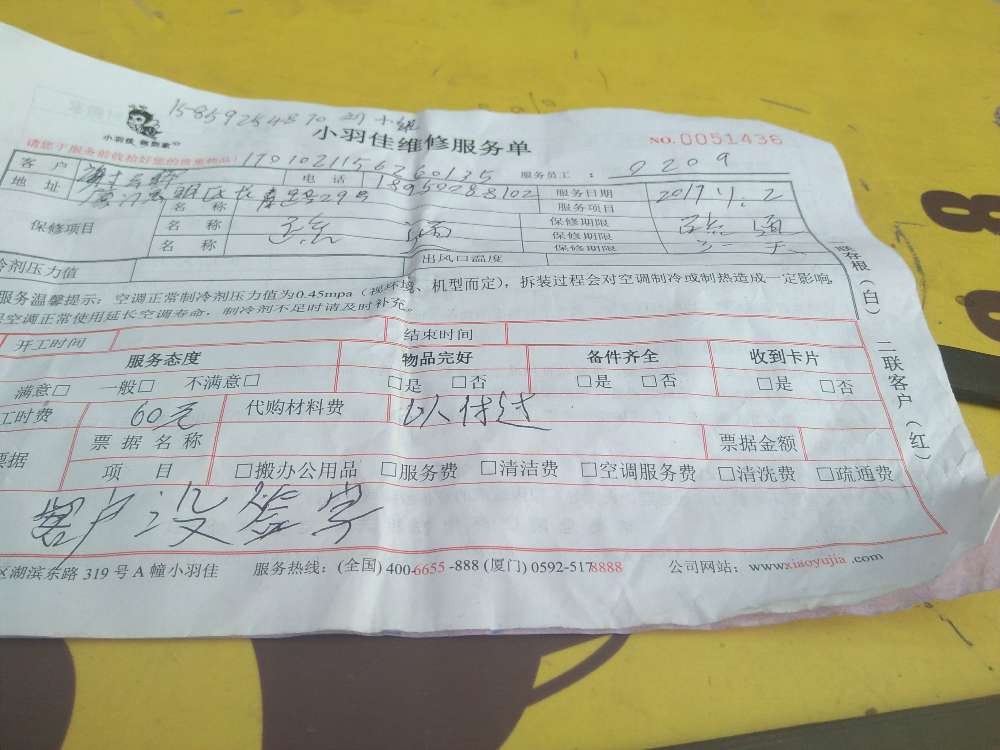 15859254870
小羽佳 家政
小羽佳维修服务单
NO.0051436
请您于服务前收拾好您的贵重物品!
17010211562260135
服务员工: 0209
客 户
电 话 18950088102
服务日期 2017 11.2
地 址 29号
服务项目
保修项目
名 称
保修期限
名 称
保修期限
名 称
保修期限
冷剂压力值
出风口温度
服务温馨提示:空调正常制冷剂压力值为0.45mpa(视环境、机型而定),拆装过程会对空调制冷或制热造成一定影响,
空调正常使用延长空调寿命,制冷剂不足时请及时补充。
开工时间
结束时间
服务态度 物品完好 备件齐全 收到卡片
满意□ 一般□ 不满意□ □是 □否 □是 □否 □是 □否
工时费 60元 代购材料费
票据
票 据 名 称
票据金额
项 目 □搬办公用品 □服务费 □清洁费 □空调服务费 □清洗费 □疏通费
客户没签字
区湖滨东路 319 号 A 幢小羽佳 服务热线:(全国) 400-6655-888 (厦门) 0592-5178888 公司网站:www.xiaoyujia.com
联存根(白) 二联客户(红)